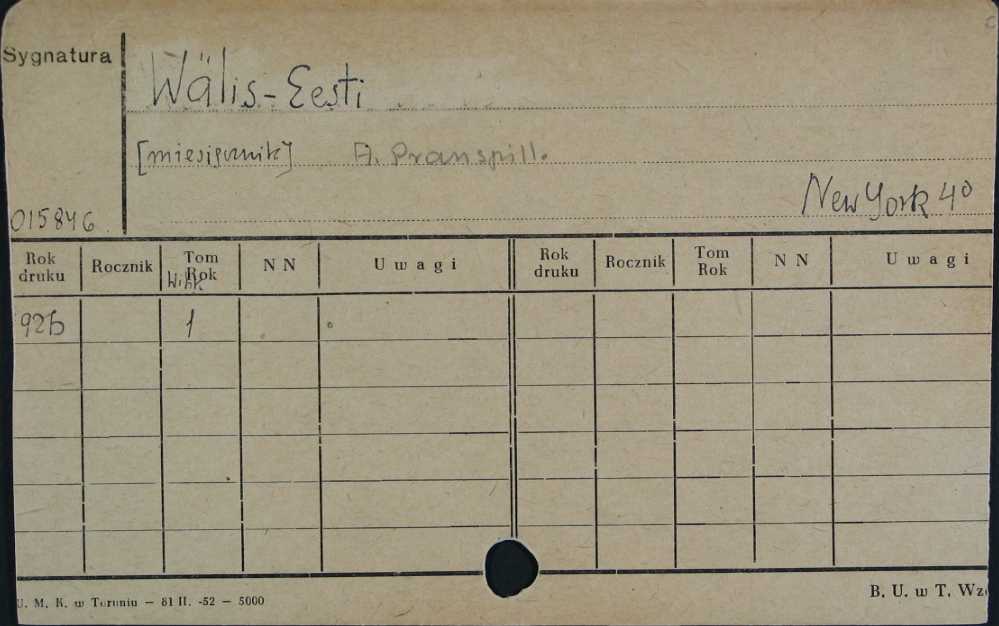 Sygnatura
Wälis-Eesti
[miesięcznik] A. Pranspill.
New York 4°
015846
Rok druku Rocznik Tom Rok N N Uwagi Rok druku Rocznik Tom Rok N N Uwagi
925 1
U. M. K. w Toruniu — 81 II. -52 — 5000
B. U. w T. Wz